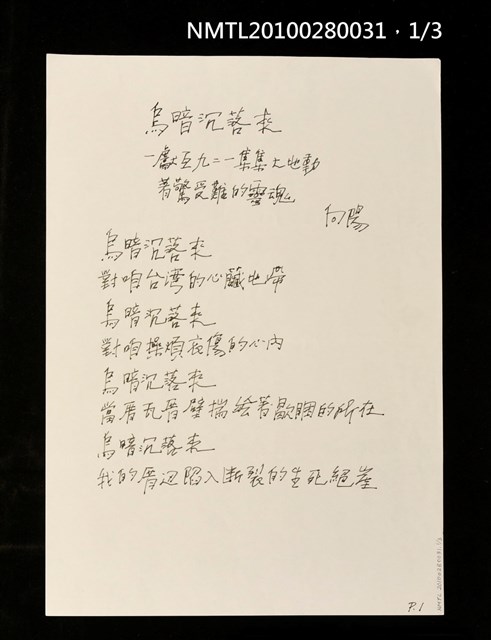 NMTL20100280031，1/3
烏暗沉落來
—獻互九二一集集大地動
著驚受難的靈魂
向陽
烏暗沉落來
對咱台湾的心臟地帶
烏暗沉落來
對咱操煩哀傷的心內
烏暗沉落來
當厝瓦厝壁揣繪著歇睏的所在
烏暗沉落來
我的厝边陷入断裂的生死絕崖
P.1
NMTL20100280031 1/3